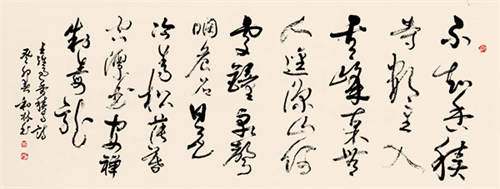 不知香積
寺數里入
雲峰古木無
人逕深山何
處鐘泉聲
咽危石日色
冷青松薄暮
空潭曲安禪
制毒龍
王維過香積寺詩
癸卯